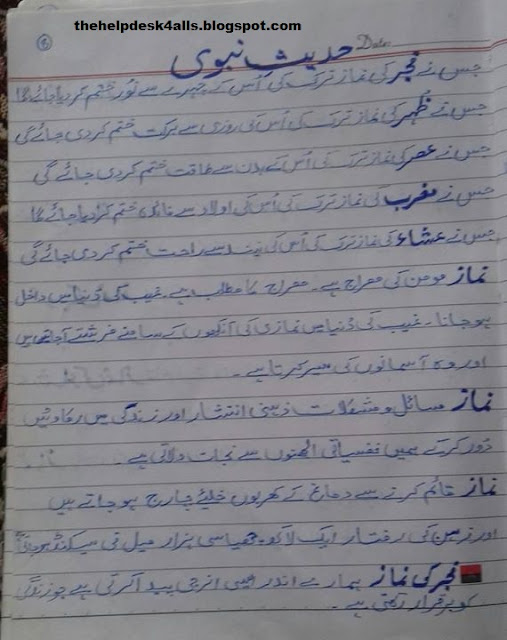 thehelpdesk4alls.blogspot.com
Date:
حدیث نبوی
جس نے فجر کی نماز ترک کی اُس کے چہرے سے نُور ختم کر دیا جائے گا
جس نے ظُہر کی نماز ترک کی اُس کی روزی سے برکت ختم کر دی جائے گی
جس نے عصر کی نماز ترک کی اُس کے بدن سے طاقت ختم کر دی جائے گی
جس نے مغرب کی نماز ترک کی اُس کی اولاد سے فائدہ ختم کر دیا جائے گا
جس نے عشاء کی نماز ترک کی اُس کی نیند سے راحت ختم کر دی جائے گی
نماز مومن کی معراج ہے۔ معراج کا مطلب ہے۔ غیب کی دُنیا میں داخل
ہو جانا۔ غیب کی دُنیا میں نمازی کی آنکھوں کے سامنے فرشتے آجاتے ہیں
اور وہ آسمانوں کی سیر کرتا ہے۔
نماز مسائل و مشکلات ذہنی انتشار اور زندگی میں رکاوٹیں
دُور کر کے ہمیں نفسیاتی الجھنوں سے نجات دلاتی ہے۔
نماز قائم کرنے سے دماغ کے کھربوں خلیئے چارج ہو جاتے ہیں
اور زمین کی رفتار ایک لاکھ چھیاسی ہزار میل فی سیکنڈ ہو جاتی
فجر کی نماز ہمارے اندر ایسی انرجی پیدا کرتی ہے جو زندگی
کو برقرار رکھتی ہے۔